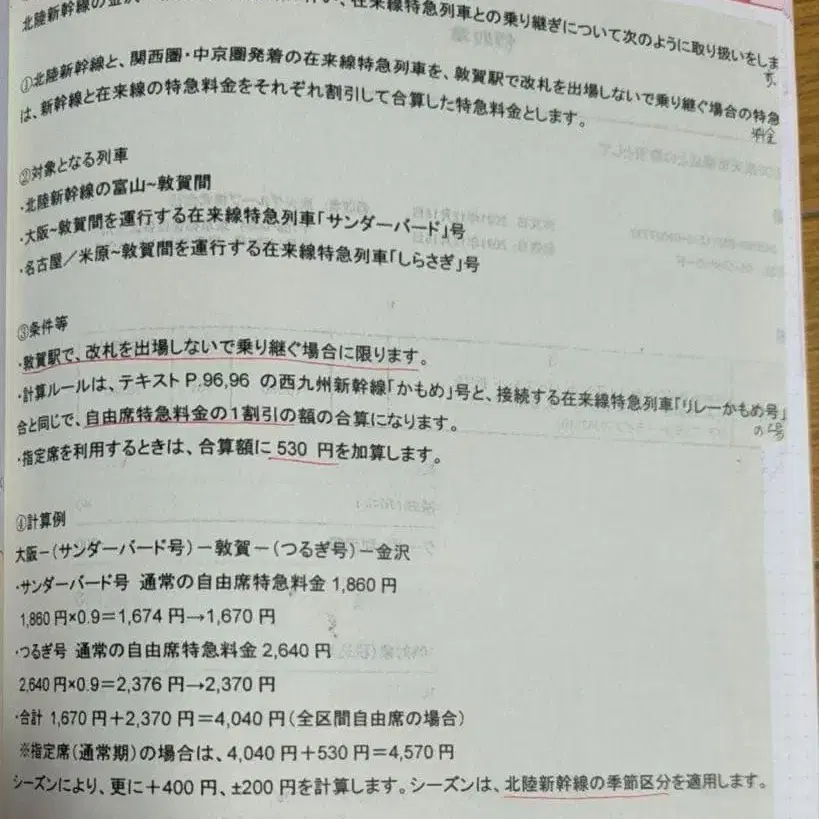 北陸新幹線の金沢 い、在来線特急列車との乗り継ぎについて次のように取り扱いをしま
す。
①北陸新幹線と、関西圏・中京圏発着の在来線特急列車を、敦賀駅で改札を出場しないで乗り継ぐ場合の特急
料金
は、新幹線と在来線の特急料金をそれぞれ割引して合算した特急料金とします。
②対象となる列車
・北陸新幹線の富山~敦賀間
・大阪~敦賀間を運行する在来線特急列車「サンダーバード」号
・名古屋／米原~敦賀間を運行する在来線特急列車「しらさぎ」号
③条件等
・敦賀駅で、改札を出場しないで乗り継ぐ場合に限ります。
・計算ルールは、テキスト P.96,96 の西九州新幹線「かもめ」号と、接続する在来線特急列車「リレーかもめ号」
の場
合と同じで、自由席特急料金の1割引の額の合算になります。
・指定席を利用するときは、合算額に 530 円を加算します。
④計算例
大阪－(サンダーバード号)－敦賀－(つるぎ号)－金沢
・サンダーバード号 通常の自由席特急料金 1,860 円
1,860 円×0.9＝1,674 円→1,670 円
・つるぎ号 通常の自由席特急料金 2,640 円
2,640 円×0.9＝2,376 円→2,370 円
・合計 1,670 円＋2,370 円＝4,040 円(全区間自由席の場合)
※指定席(通常期)の場合は、4,040 円＋530 円＝4,570 円
シーズンにより、更に＋400 円、±200 円を計算します。シーズンは、北陸新幹線の季節区分を適用します。